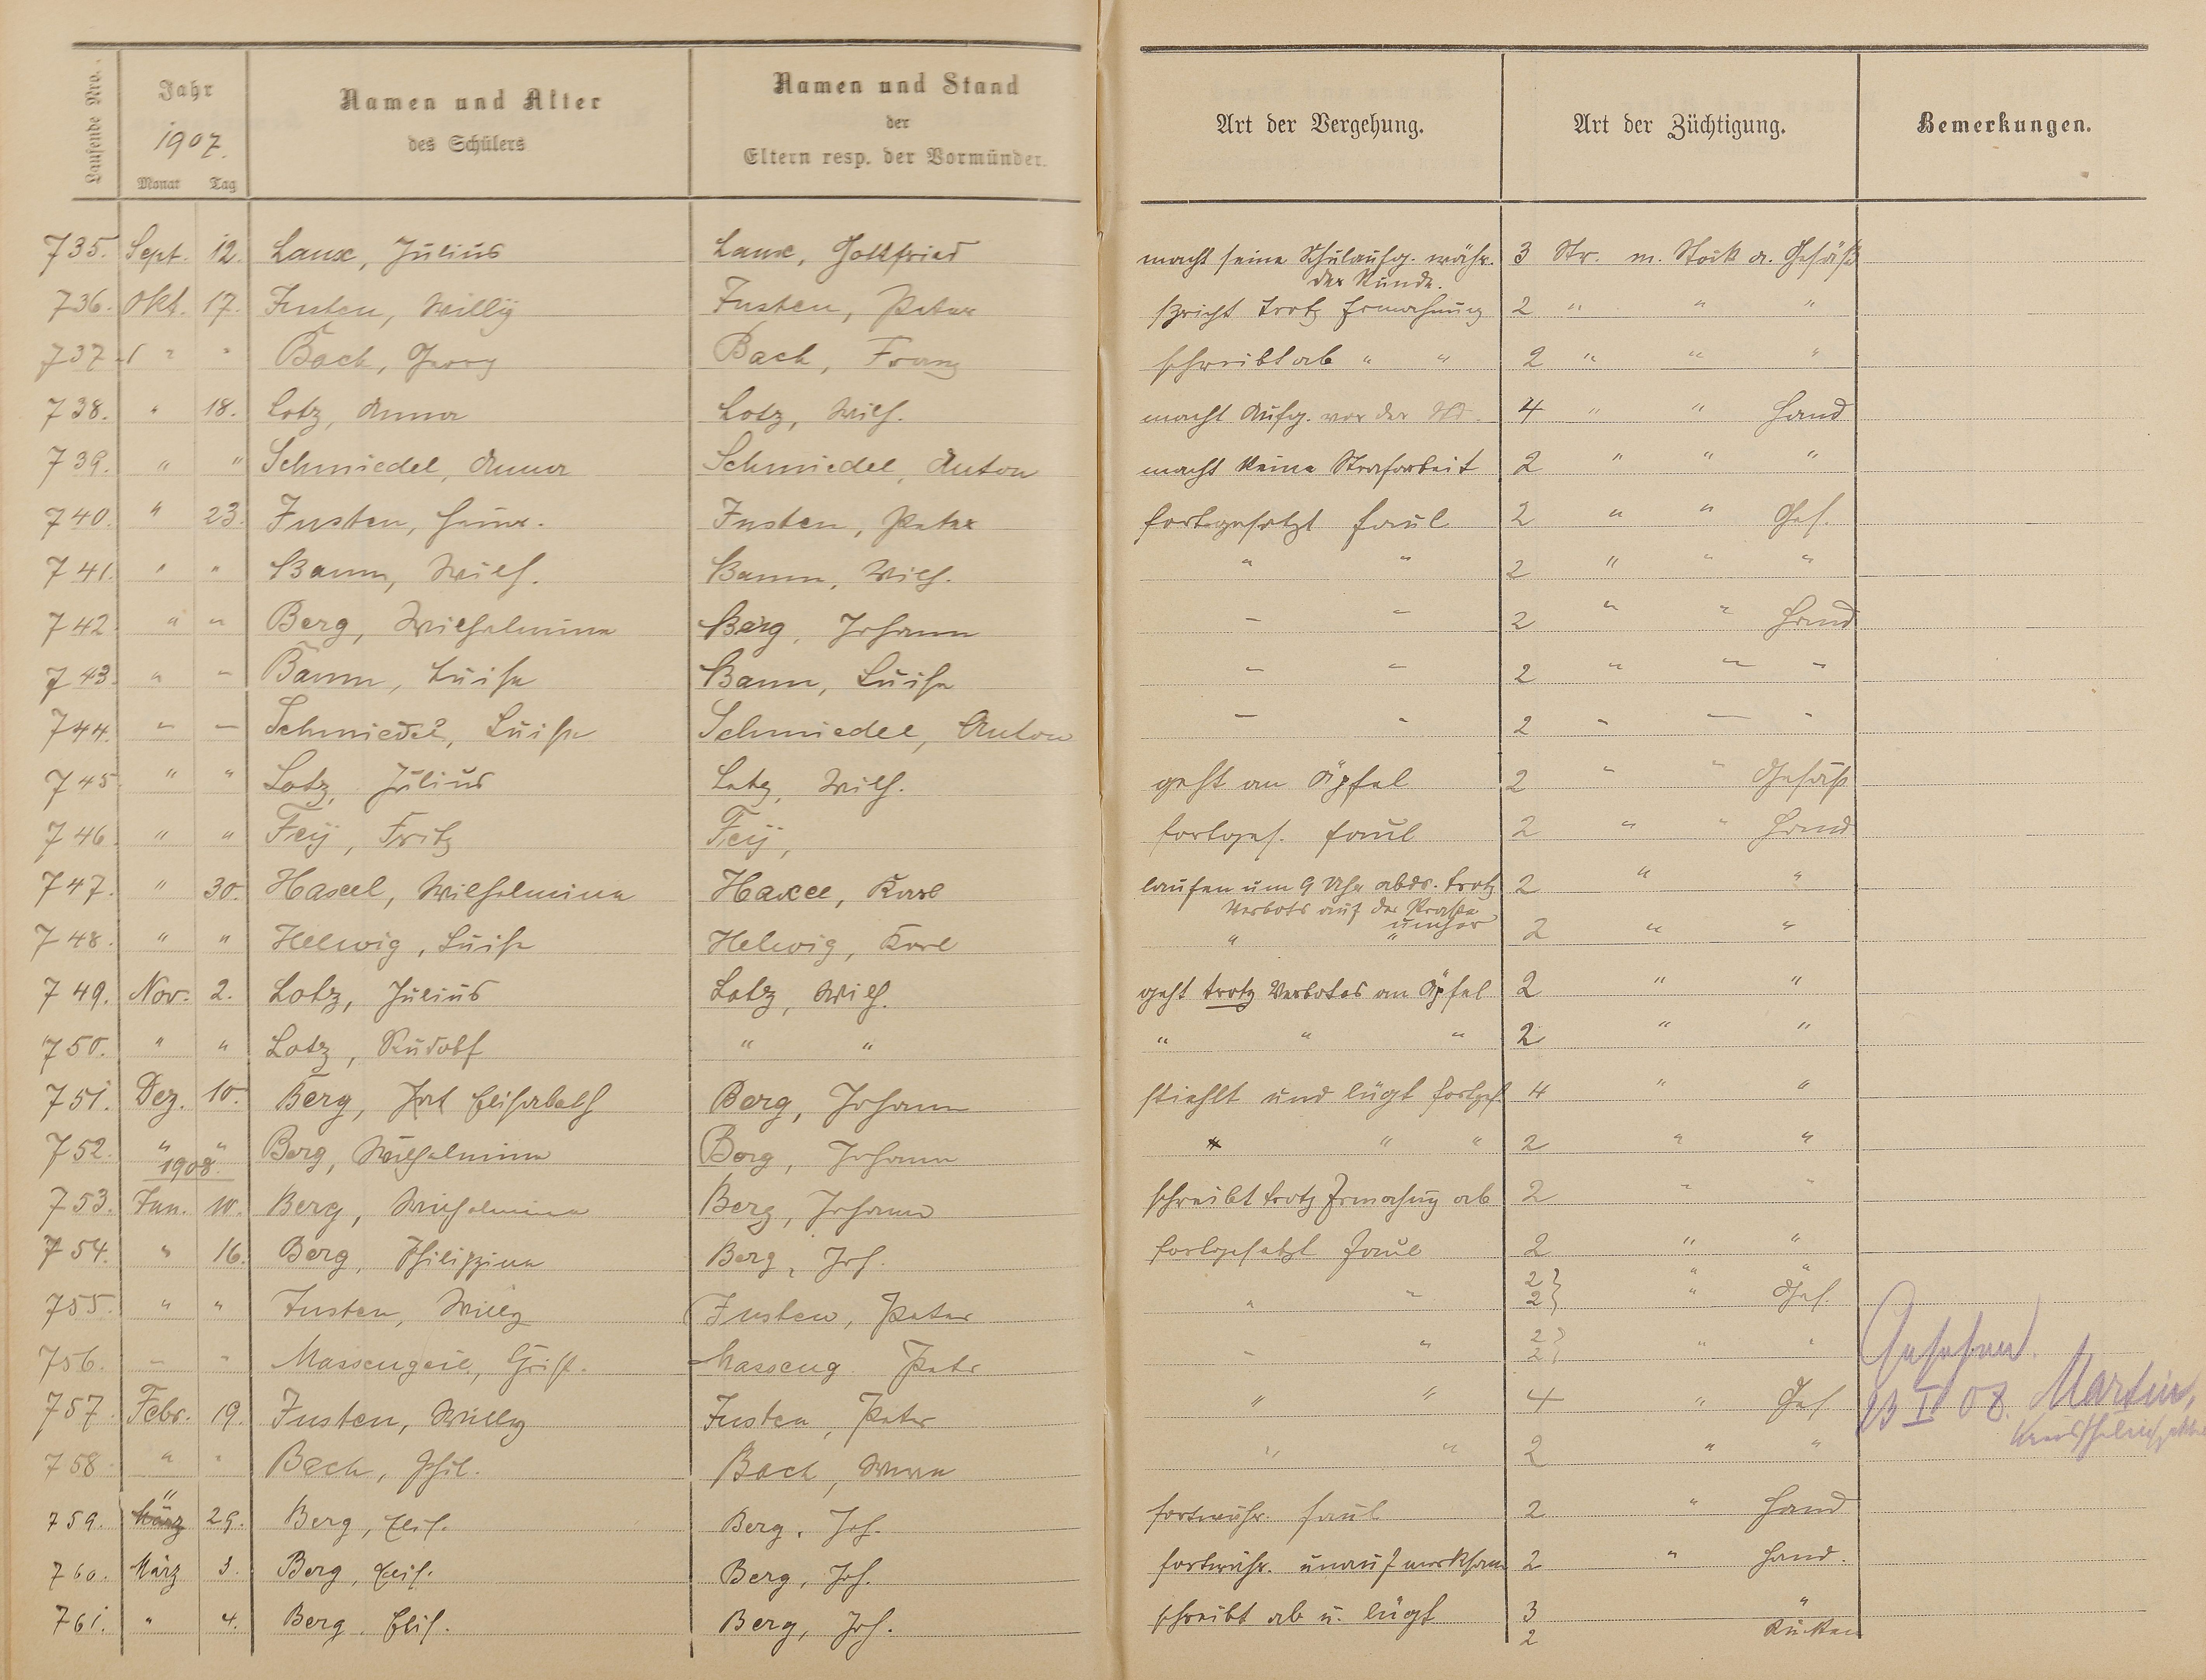 Laufende Nro. | Jahr 1907. Monat Tag | Namen und Alter des Schülers | Namen und Stand der Eltern resp. der Vormünder. | Art der Vergehung. | Art der Züchtigung. | Bemerkungen.
735. Sept. 12. Laux, Julius | Laux, Gottfried | macht seine Schulaufg. währ. der Stunde. | 3 Str. m. Stock a. Gesäß
736. Okt. 17. Justen, Willy | Justen, Peter | spricht trotz Ermahnung | 2 " " "
737. " " Bach, Georg | Bach, Franz | schreibt ab " " | 2 " " "
738. " 18. Lotz, Anna | Lotz, Wilh. | macht Aufg. vor der Std. | 4 " " Hand
739. " " Schmiedel, Anna | Schmiedel, Anton | macht keine Strafarbeit | 2 " " "
740. " 23. Justen, Heinr. | Justen, Peter | fortgesetzt faul | 2 " " Ges.
741. " " Baum, Wilh. | Baum, Wilh. | " " | 2 " " "
742. " " Berg, Wilhelmine | Berg, Johann | " " | 2 " " Hand
743. " " Baum, Luise | Baum, Luise | " " | 2 " " "
744. " " Schmiedel, Luise | Schmiedel, Anton | " " | 2 " " "
745. " " Lotz, Julius | Lotz, Wilh. | geht an Äpfel | 2 " " Gesäß
746. " " Fey, Fritz | Fey, | fortges. faul | 2 " " Hand
747. " 30. Haxel, Wilhelmina | Haxel, Karl | laufen um 9 Uhr abds. trotz Verbots auf der Straße umher | 2 " "
748. " " Helwig, Luise | Helwig, Karl | " " | 2 " "
749. Nov. 2. Lotz, Julius | Lotz, Wilh. | geht trotz Verbotes an Äpfel | 2 " "
750. " " Lotz, Rudolf | " " | " " " | 2 " "
751. Dez. 10. Berg, Elisabeth | Berg, Johann | stiehlt und lügt fortges. | 4 " "
752. " " Berg, Wilhelmine | Berg, Johann | " " | 2 " "
1908
753. Jan. 10. Berg, Wilhelmina | Berg, Johann | schreibt trotz Ermahng ab | 2 " "
754. " 16. Berg, Philippina | Berg, Joh. | fortgesetzt faul | 2 " "
755. " " Justen, Willy | Justen, Peter | " " | 2 } " " 2 } " Ges.
756. " " Massengeil, Christ. | Masseng. Peter | " " | 2 } 2 } " "
757. Febr. 19. Justen, Willy | Justen, Peter | " " | 4 " Ges.
758. " " Bach, Phil. | Bach, | " " | 2 " "
Gesehen.
Martin,
Kreisschulinspektor
759. " 29. Berg, Elis. | Berg, Joh. | fortwähr. faul | 2 " Hand
760. März 3. Berg, Elis. | Berg, Joh. | fortwähr. unaufmerksam | 2 " Hand.
761. " 4. Berg, Elis. | Berg, Joh. | schreibt ab u. lügt | 3 " 2 Rücken